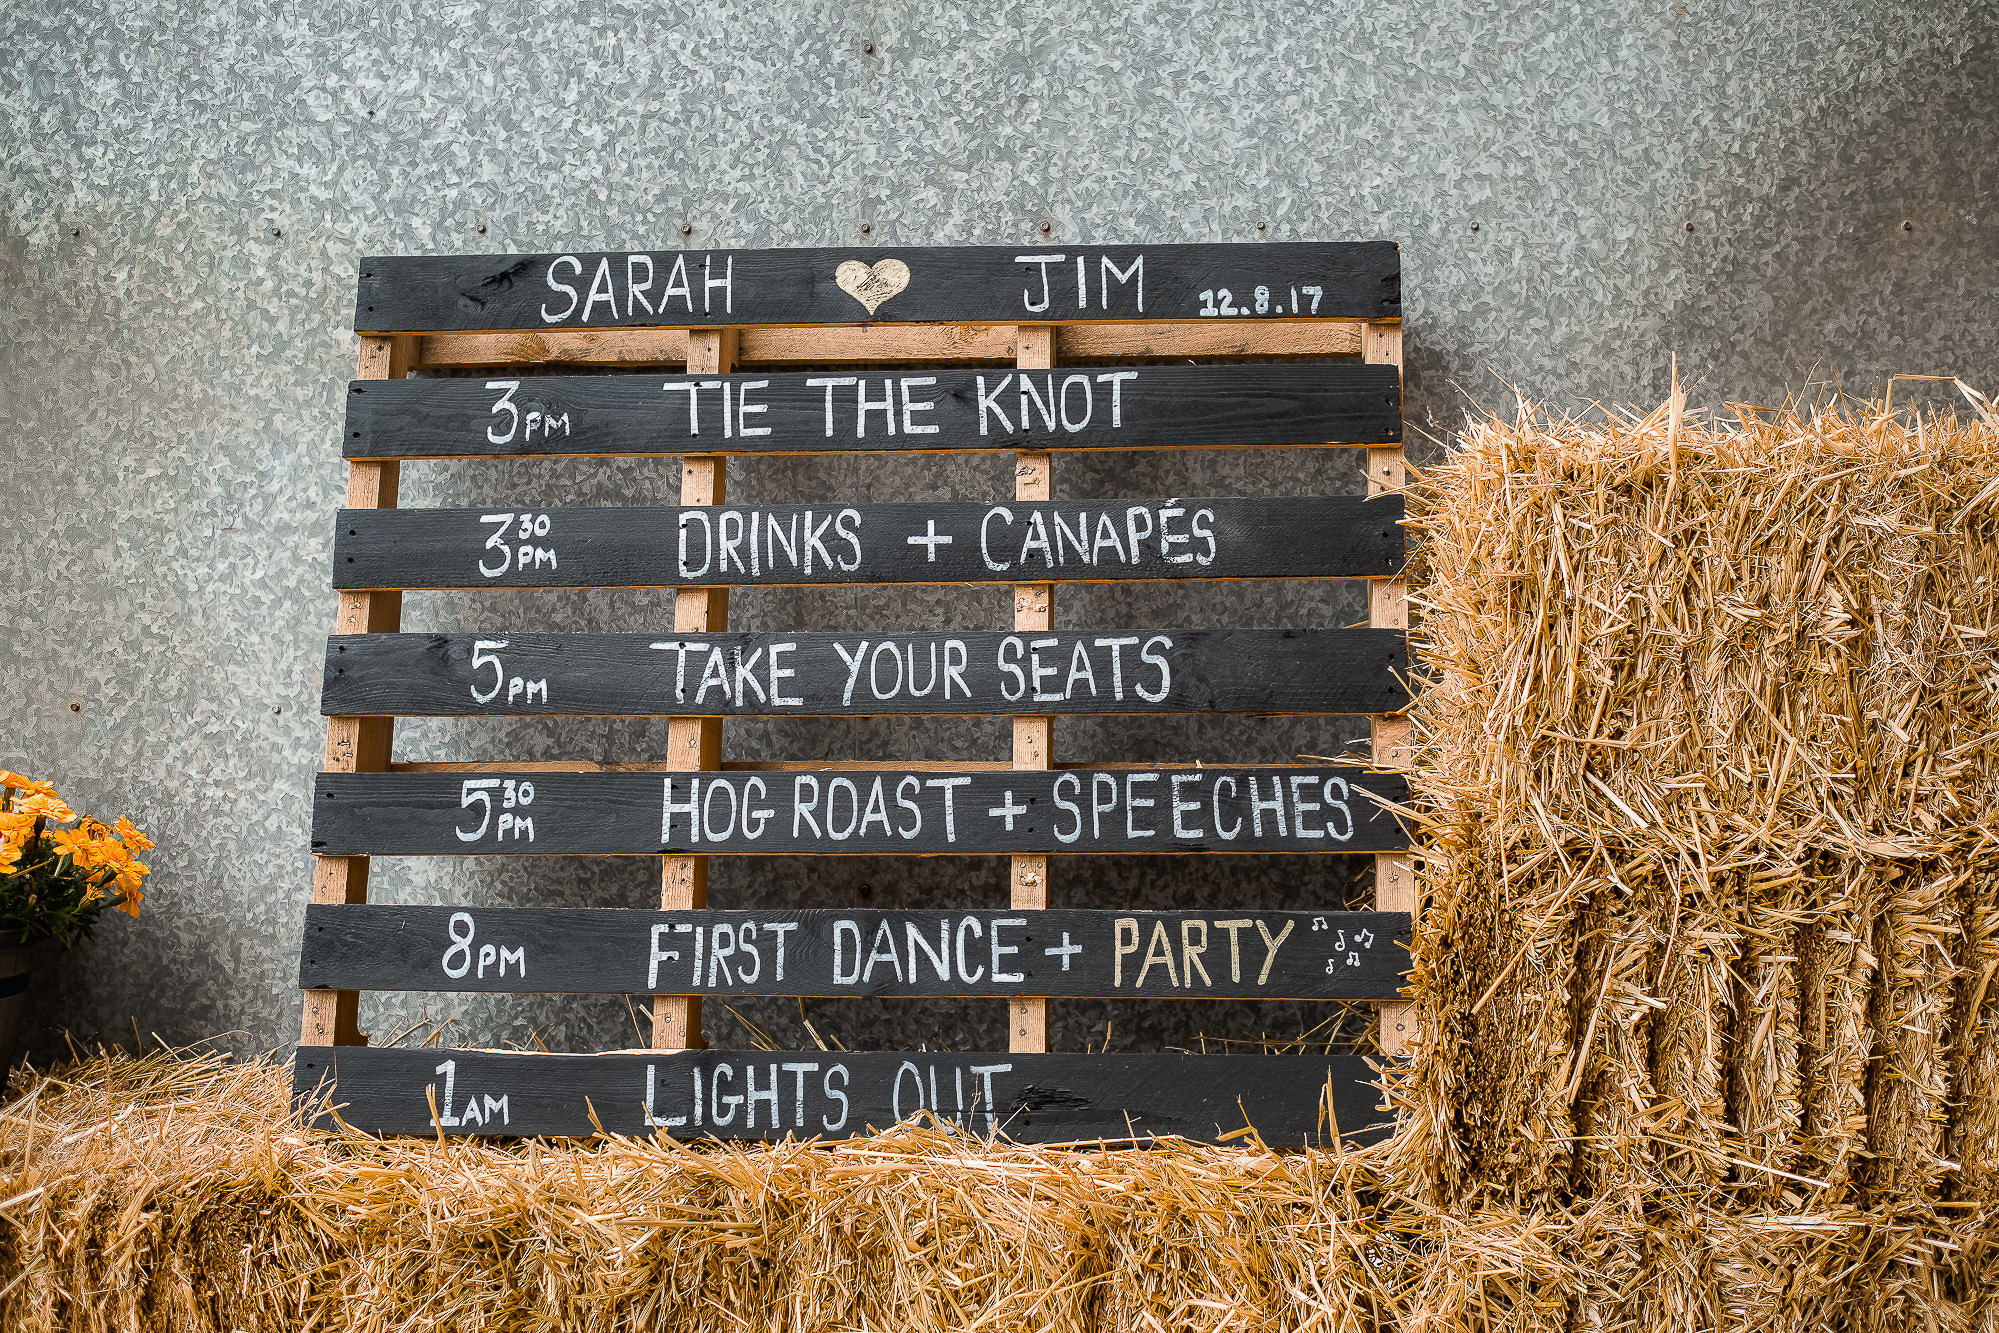 SARAH ♥ JIM 12.8.17
3PM TIE THE KNOT
3 30 PM DRINKS + CANAPÉS
5PM TAKE YOUR SEATS
5 30 PM HOG ROAST + SPEECHES
8PM FIRST DANCE + PARTY
1AM LIGHTS OUT